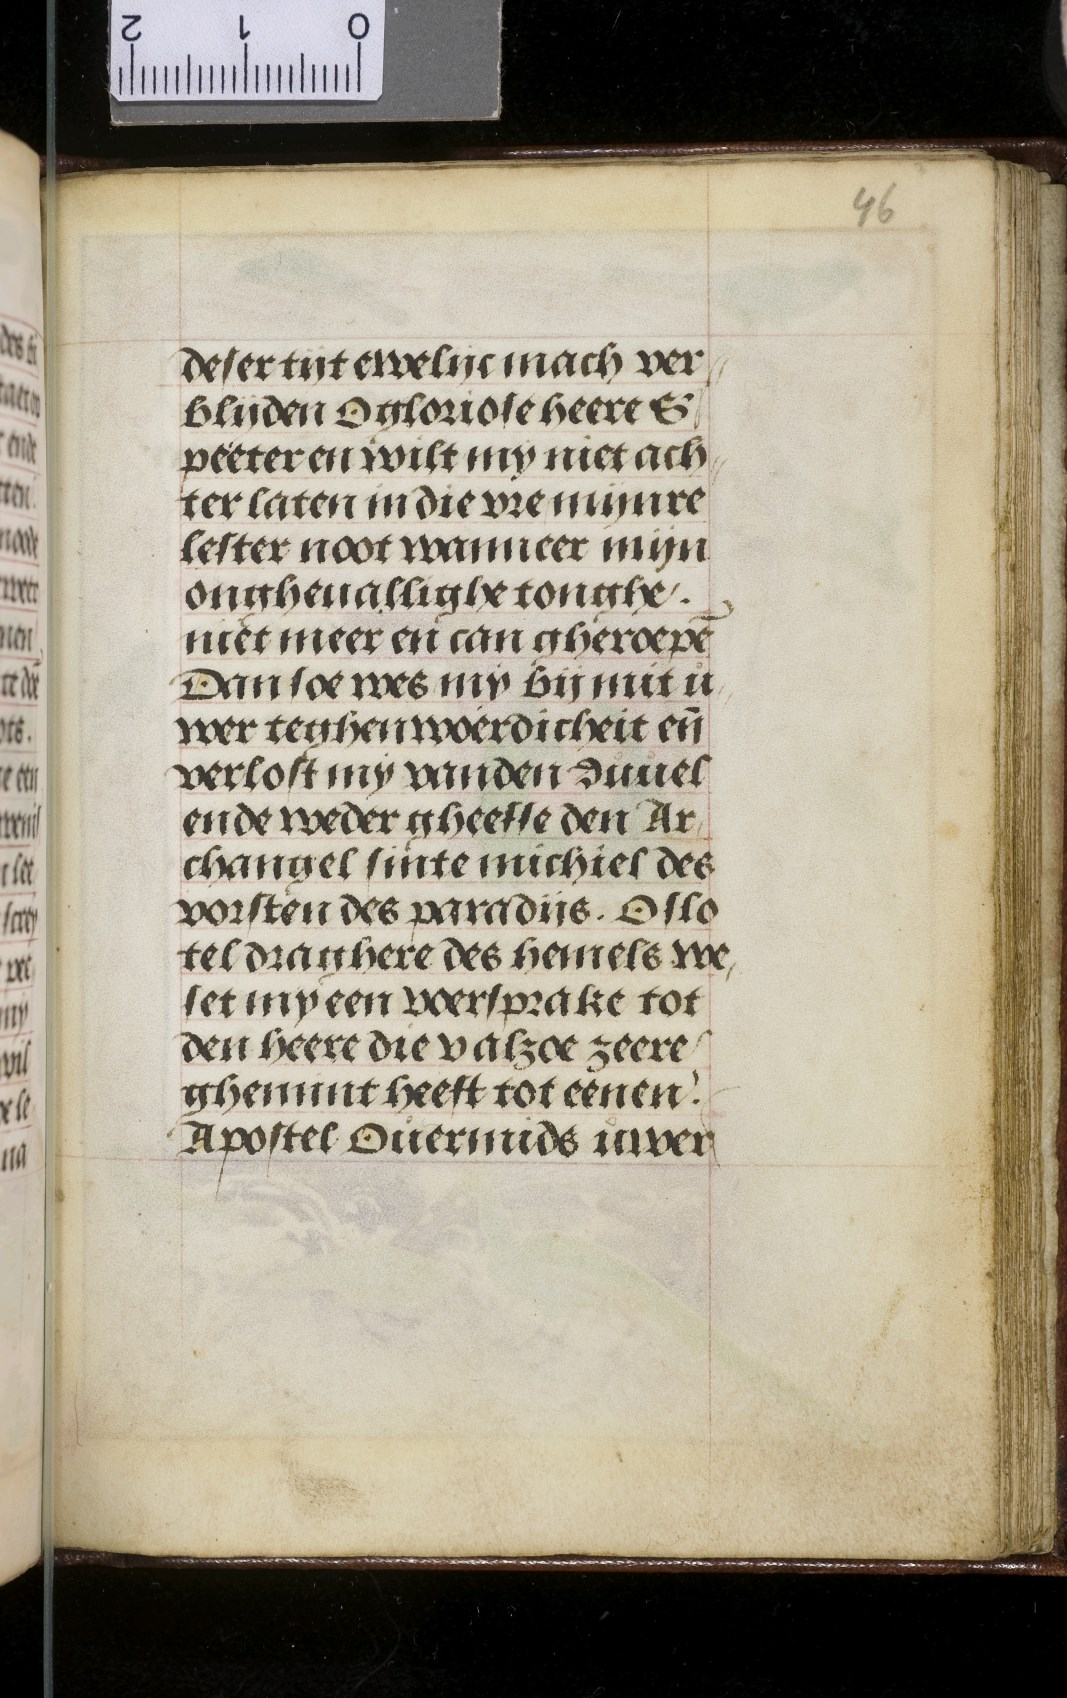 46
deser tijt ewelijc mach ver
blijden O gloriose heere S
peeter en wilt my niet ach
ter laten in die vre mijnre
lester noot wanneer mijn
onghevallighe tonghe.
niet meer en can gheroepē
Dan soe wes my bij mit u
wer teghenwoerdicheit eñ
verlost my vanden duuel
ende weder gheeffe den Ar
changel sinte michiel des
vorsten des paradijs. O slo
tel draghere des hemels we
set my een voersprake tot
den heere die v alzoe zeere
ghemint heeft tot eenen
Apostel Ouermids uwer
2 1 0